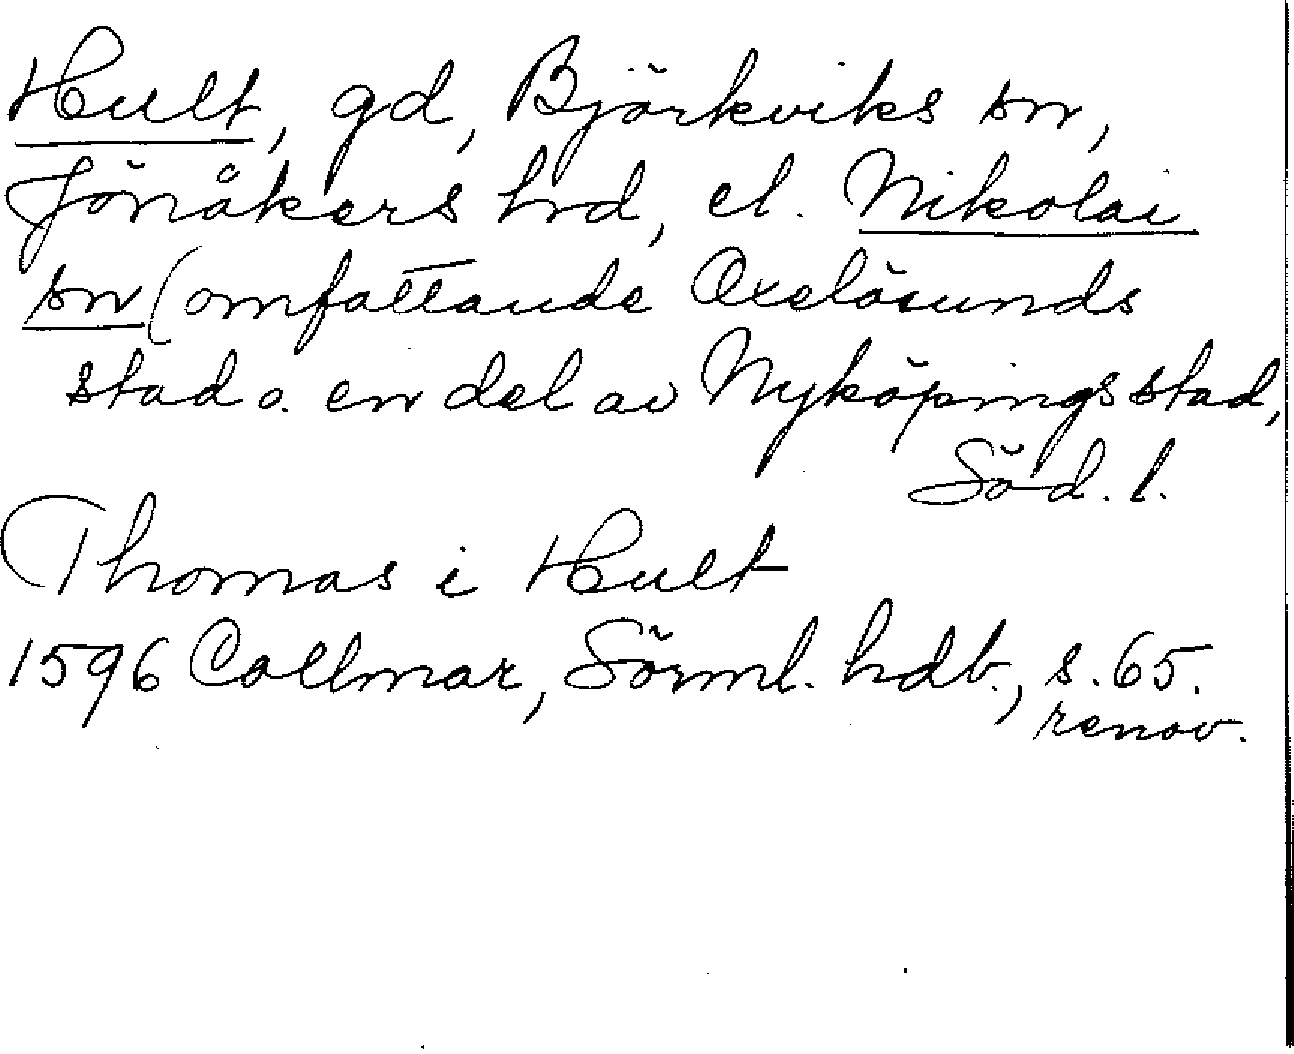 Hult, gd, Björkviks sn,
Jönåkers hrd, el. Nikolai
sn (omfattande Oxelösunds
stad o. en del av Nyköpings stad,
Söd. l.
Thomas i Hult
1596 Collmar, Sörml. hdb., s. 65.
renov.